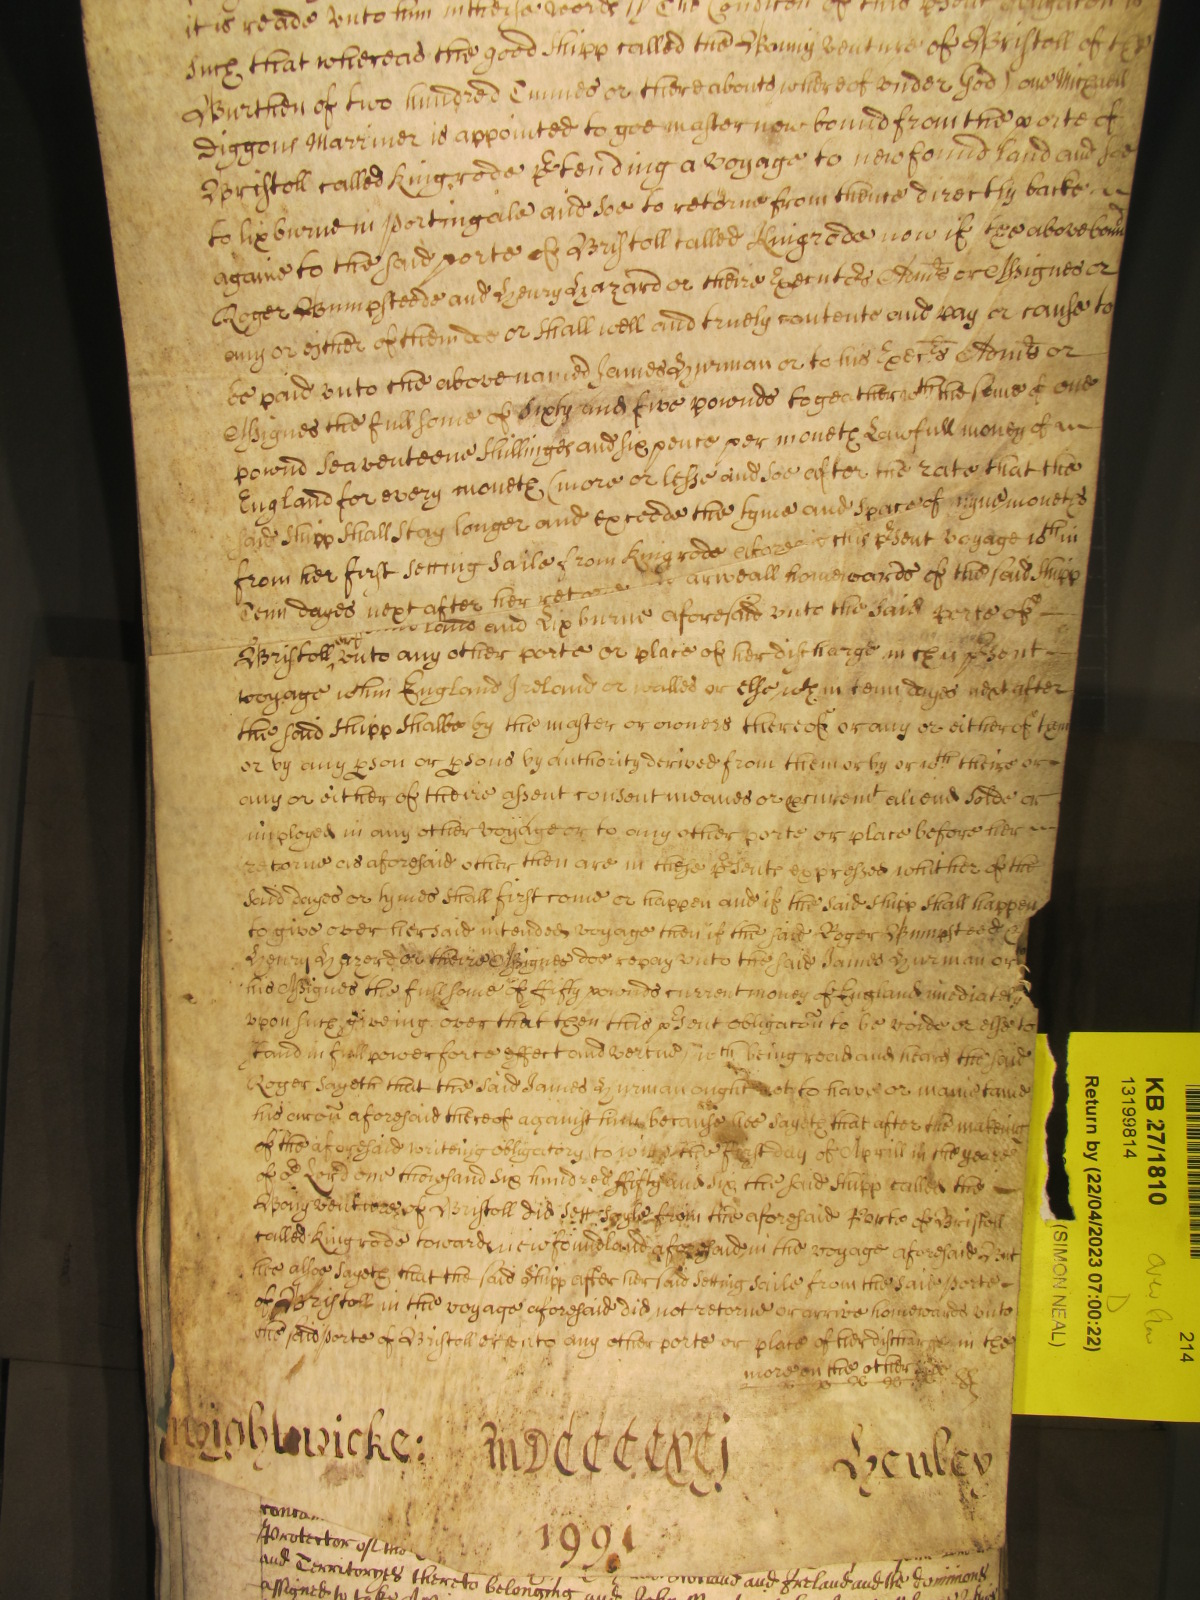 it is reade unto him in theise words // The Condicon of this psent obligacon is
Such that whereas the good Shipp called the Bonny venture of Bristoll of the
Burthen of two hundred Tunnes or thereabouts whereof under God) one Michaell
Diggons Marriner is appointed to goe master now bound from the porte of
Bristoll called Kingrode Ptending a voyage to newfound land and soe
to lixburne in Portingale and soe to retorne from thence directly backe
againe to the said porte of Bristoll called Kingrode now if the abovebound
Roger Bumpsteede and Henry Hazard or theire Executrs Admrs or Assignes or
any or either of them doe or shall well and truely contente and pay or cause to
be paid unto the above named James Hurman or to his Execrs Admrs or
Assignes the full some of Sixty and five pownds togeather wth the some of one
pownd Seaventeene Shillinges and six pence per moneth Lawfull money of
England for every moneth (more or lesse and soe after the rate that the
said Shipp shall stay longer and exceede the tyme and space of nyne moneths
from her first Setting Saile from Kingrode this psent voyage wthin
Tenn dayes next after her homewards of the said Shipp
and Lixburne aforesaid unto the said porte of
Bristoll unto any other porte or place of her discharge in this psent
voyage wthin England Ireland or walles or else wth in tenn dayes next after
the said Shipp shalbe by the master or owners thereof or any or either of them
or by any pson or psons by authority derived from them or by or wth theire or
any or either of theire assent consent meanes or pcuremt aliend solde or
imployed in any other voyage or to any other porte or place before her
retorne as aforesaid other then are in these psents expressed whither of the
said dayes or tymes shall first come or happen and if the said Shipp shall happen
to give over her said intended voyage then if the said Roger Bumpsteed
Henry Hazerd or theire Assignes doe repay unto the said James Hurman or
his Assignes the full some of fifty pownds current money of England imediately
upon such giveing over that then this psent obligacon to be voide or else to
stand in full power force effect and vertue / wch being read and heard the said
Roger Sayeth that the said James Hurman ought not to have or maintaine
his accon aforesaid thereof against him because hee Sayeth that after the makeing
of the aforesaid writeing obligatory to witt the first day of Aprill in the yeare
of or Lord one thousand six hundred fifty and six the said Shipp called the
Bony venture of Bristoll did Sett Sayle from the aforesaid Porte of Bristoll
called Kingrode towards newfoundland aforesaid in the voyage aforesaid But
hee allsoe Sayeth that the said Shipp after her said Setting Saile from the said porte
of Bristoll in the voyage aforesaid did not retorne or arrive homewards unto
the said porte of Bristoll or unto any other porte or place of her discharge in the
more on the other side
Wightwicke: MDCCCCXCj Henley
1991
Protector of the
and Territoryes thereto belonging and Ireland and the dominions
assigned to take
KB 27/1810
13199814
Return by (22/04/2023 07:00:22)
(SIMON NEAL)
214
D